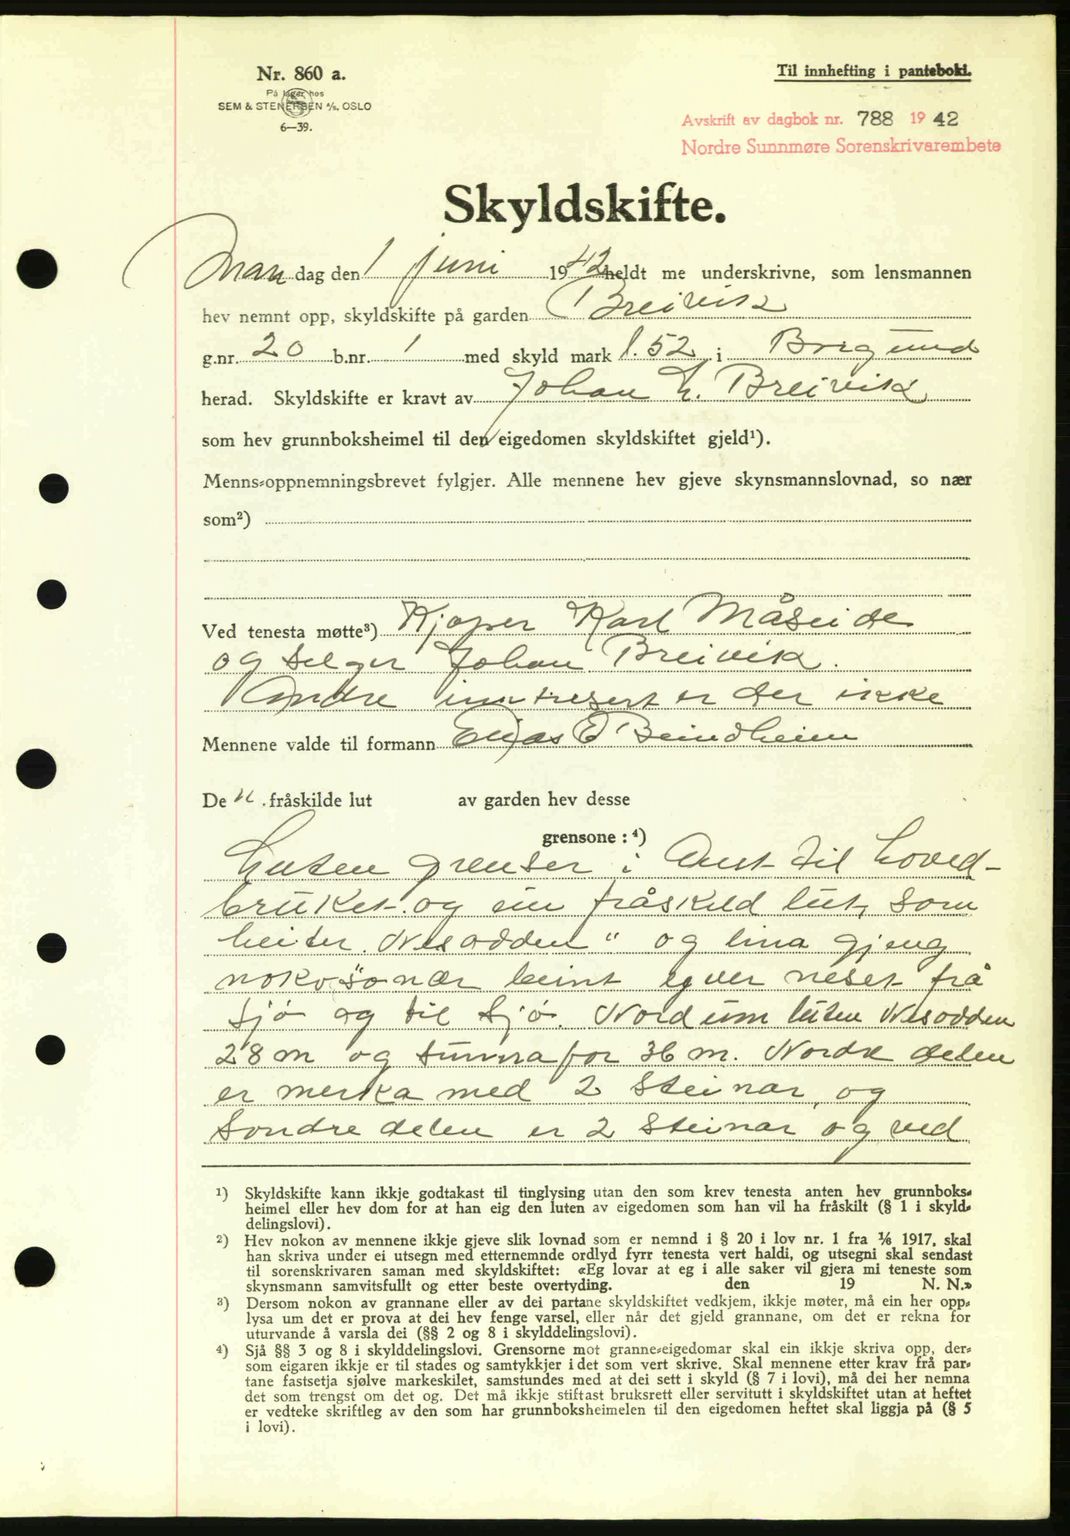 Nr. 860 a.
På lager hos
SEM & STENERSEN A/S. OSLO
6—39.
Til innhefting i panteboki.
Avskrift av dagbok nr. 788 1942
Nordre Sunnmøre Sorenskrivarembete
Skyldskifte.
Man dag den 1 juni 1942 heldt me underskrivne, som lensmannen
hev nemnt opp, skyldskifte på garden Breivik
g.nr. 20 b.nr. 1 med skyld mark 1.52 i Borgund
herad. Skyldskifte er kravt av Johan L. Breivik
som hev grunnboksheimel til den eigedomen skyldskiftet gjeld¹).
Menns-oppnemningsbrevet fylgjer. Alle mennene hev gjeve skynsmannslovnad, so nær
som²)
Ved tenesta møtte³) Kjøper Karl Måseide
og selger Johan Breivik.
Andre inntresert er der ikke
Mennene valde til formann Elias
De n. fråskilde lut av garden hev desse
grensone:⁴)
Luten grenser i Aust til hoved-
bruket og ein fråskild lut, som
heiter "Nesodden" og lina gjeng
noko so nær beint yver neset frå
sjø og til sjø. Nordum luten Nesodden
28 m og sunnafor 36 m. Nordre delen
er merka med 2 steinar, og
Sondre delen er 2 steinar og ved
¹) Skyldskifte kann ikkje godtakast til tinglysing utan den som krev tenesta anten hev grunnboks-
heimel eller hev dom for at han eig den luten av eigedomen som han vil ha fråskilt (§ 1 i skyld-
delingslovi).
²) Hev nokon av mennene ikkje gjeve slik lovnad som er nemnd i § 20 i lov nr. 1 fra 1/6 1917, skal
han skriva under ei utsegn med etternemnde ordlyd fyrr tenesta vert haldi, og utsegni skal sendast
til sorenskrivaren saman med skyldskiftet: «Eg lovar at eg i alle saker vil gjera mi teneste som
skynsmann samvitsfullt og etter beste overtyding. den 19 N. N.»
³) Dersom nokon av grannane eller av dei partane skyldskiftet vedkjem, ikkje møter, må ein her opp-
lysa um det er prova at dei hev fenge varsel, eller når det gjeld grannane, om det er rekna for
uturvande å varsla dei (§§ 2 og 8 i skylddelingslovi).
⁴) Sjå §§ 3 og 8 i skylddelingslovi. Grensorne mot granne-eigedomar skal ein ikkje skriva opp, der-
som eigaren ikkje er til stades og samtykkjer i det som vert skrive. Skal mennene etter krav frå par-
tane fastsetja sjølve markeskilet, samstundes med at dei sett i skyld (§ 7 i lovi), må dei her nemna
det som trengst om det og. Det må ikkje stiftast bruksrett eller servitutt i skyldskiftet utan at heftet
er vedteke skriftleg av den som har grunnboksheimelen til den eigedomen heftet skal liggja på (§ 5
i lovi).